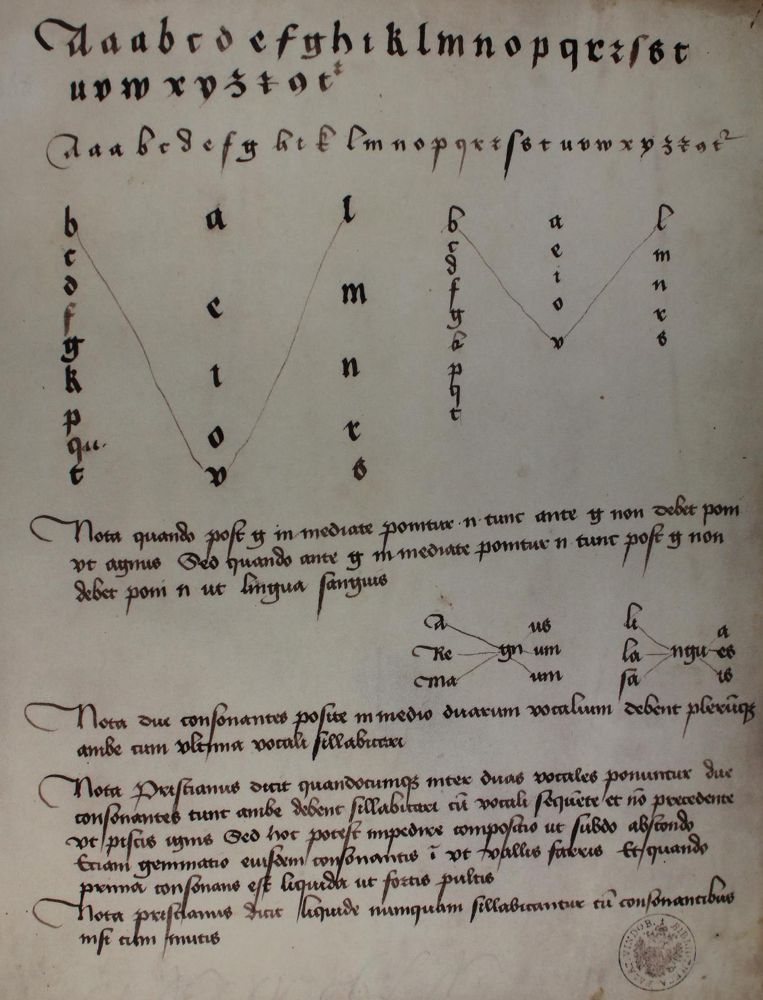 A a a b c d e f g h i k l m n o p q r ꝛ ſ s t
u v w x y z ꝛ 9 t
A a a b c d e f g h i k l m n o p q r ꝛ ſ s t u v w x y z ꝛ 9 t
b a l
c
d
f e m
g
k i n
p
qu o r
t v s
b a l
c e m
d
f i n
g o r
k v s
p
q
t
Nota quando post g in mediate ponitur n tunc ante g non debet poni
vt agnus Sed quando ante g in mediate ponitur n tunc post g non
debet poni n ut lingua sanguis
A us
Re gn um
Ma um
li a
la ngu es
sa is
Nota due consonantes posite in medio duarum vocalium debent plerūqꝫ
ambe cum vltima vocali sillabicari
Nota Priscianus dicit quandocumqꝫ inter duas vocales ponuntur due
consonantes tunc ambe debent sillabicari cū vocali sequēte et nō precedente
vt piscis ignis Sed hoc potest impedire compositio ut subdo abscondo
Etiam geminatio eiusdem consonantis ī vt vallis farris Et quando
prima consonans est liquida ut fortis pultis
Nota priscianus dicit liquide numquam sillabicantur cū consonantibus
nisi cum mutis